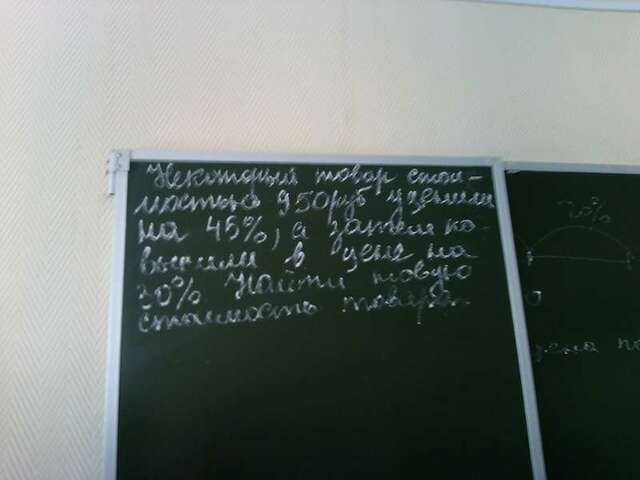 Некоторый товар стои-
мостью 950руб уценили
на 45%, а затем по-
высили в цене на
30%. Найти новую
стоимость товара.
30%
0
цена по